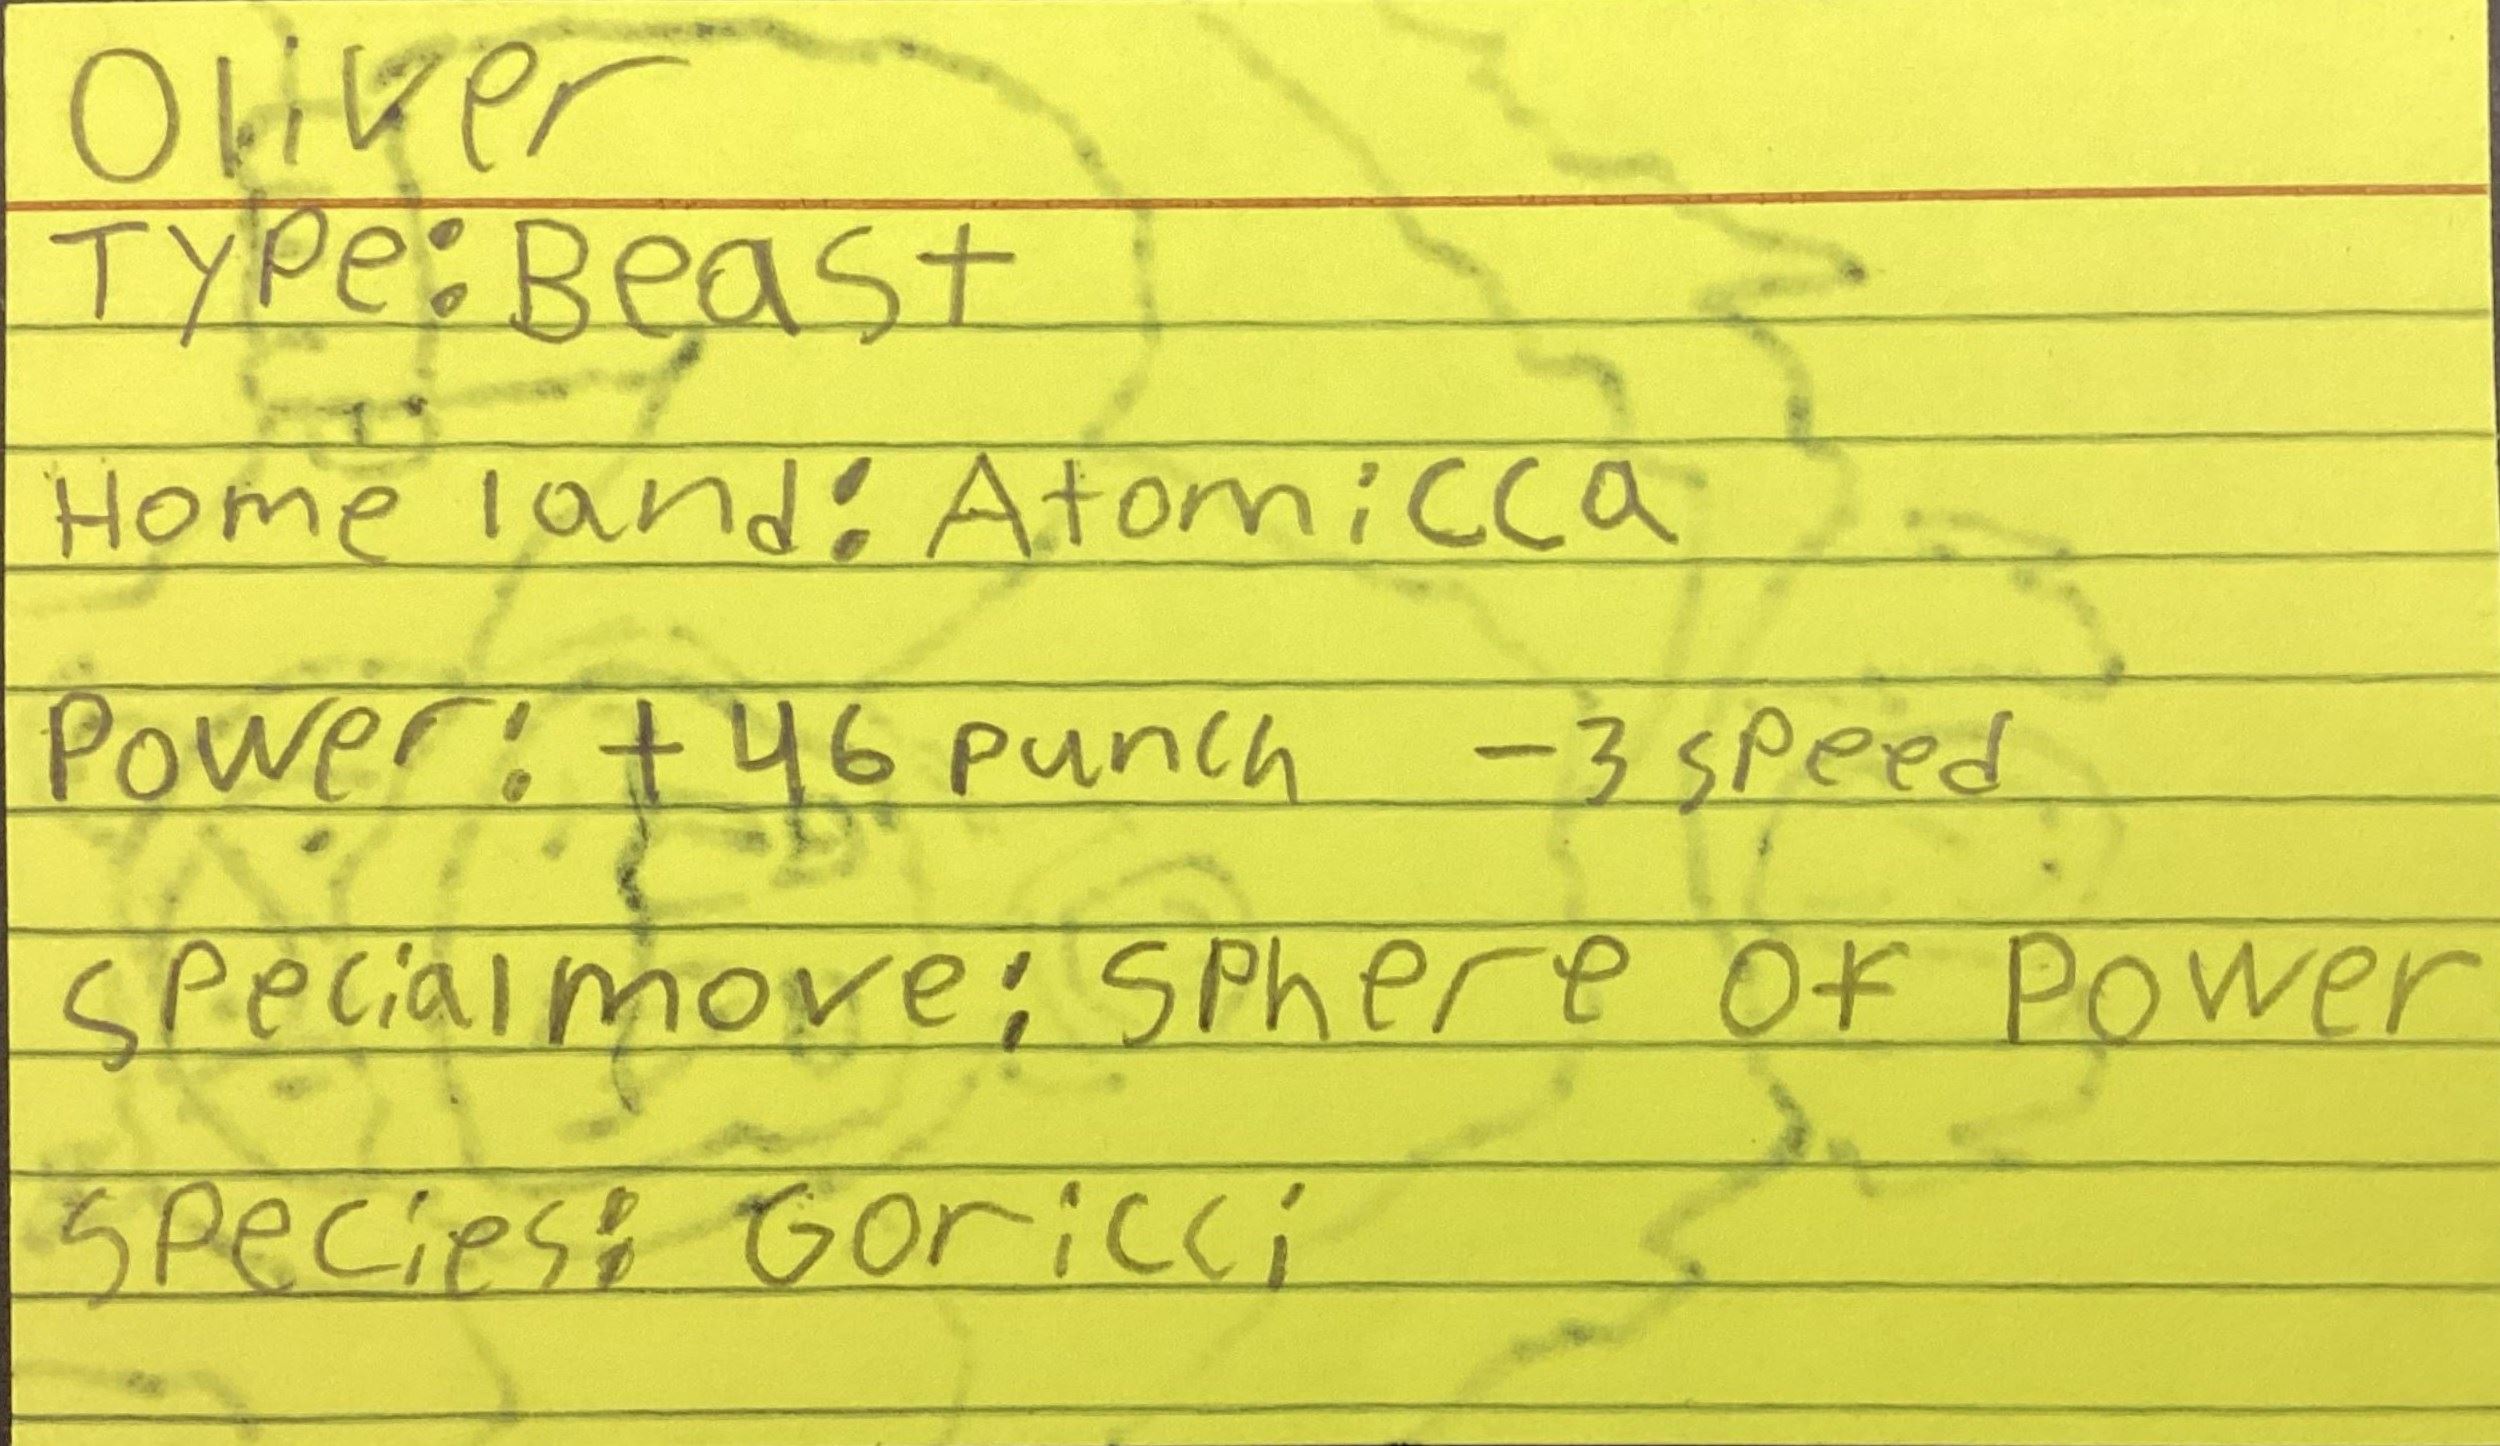 Oliver
Type: Beast
Home land: Atomicca
Power: +46 punch -3 speed
specialmove: sphere of power
species: Goricci